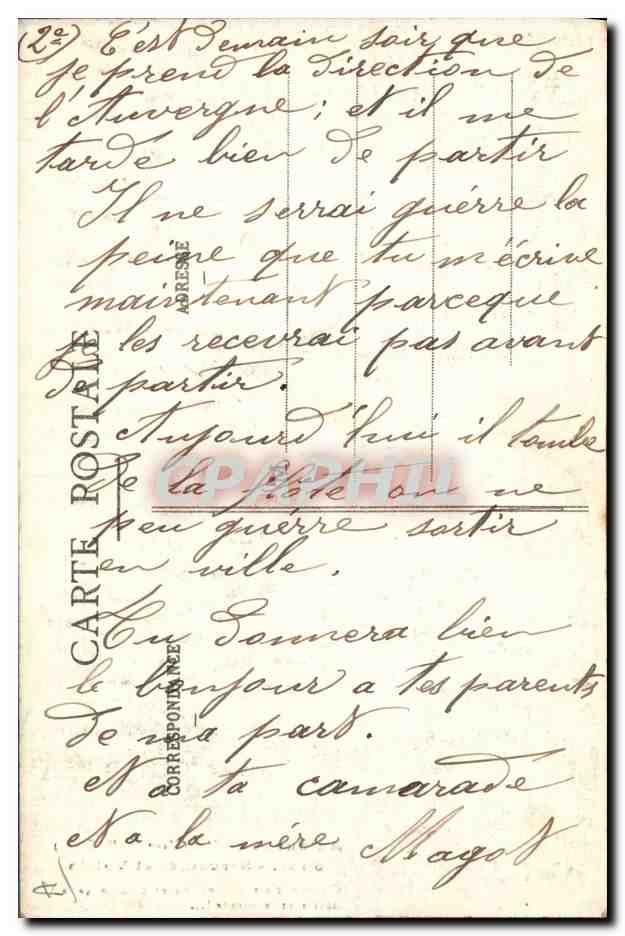 (2e) C'est demain soir que
je prend la direction de
l'Auvergne ; et il me
tarde bien de partir
Il ne serrai guérre la
peine que tu m'écrive
maintenant parceque
je les recevrai pas avant
de partir.
Aujourd'hui il tombe
de la flote on ne
peu guérre sortir
en ville.
Tu donnera bien
le bonjour a tes parents
de ma part.
ta camarade
la mére Magot
CARTE POSTALE
ADRESSE
CORRESPONDANCE
CPAPHIL